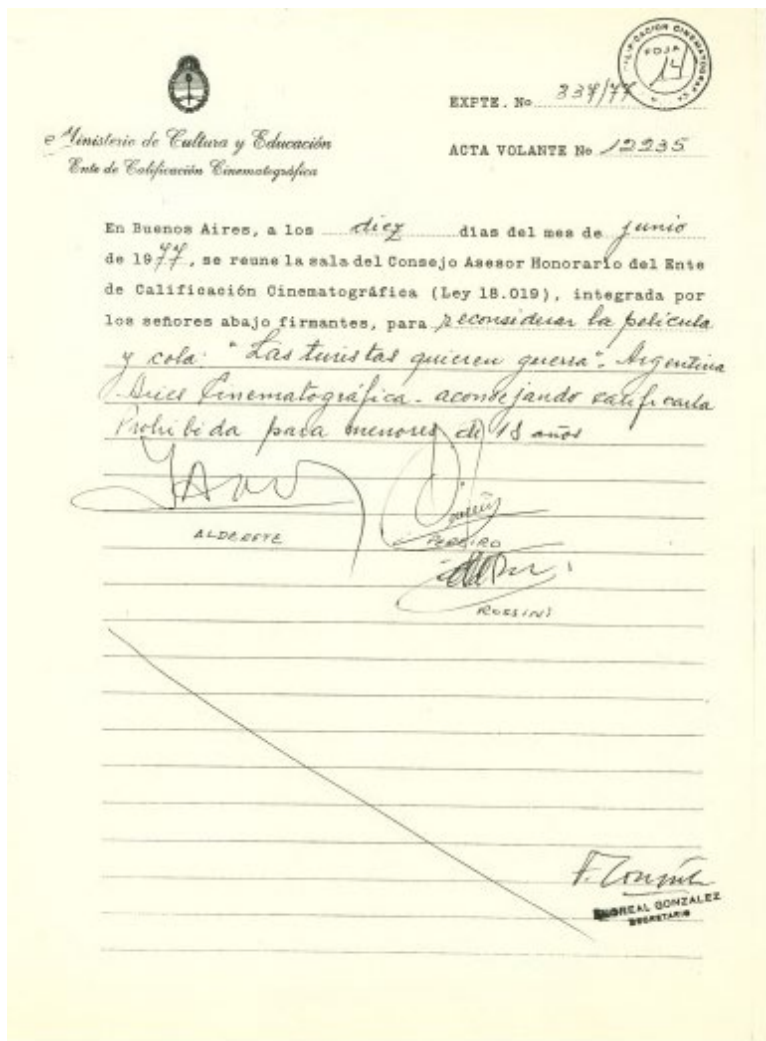 CALIFICACION CINEMATOGRAFICA
FOJA
14
EXPTE. No 339/77
Ministerio de Cultura y Educación
Ente de Calificación Cinematográfica
ACTA VOLANTE No 12235
En Buenos Aires, a los diez dias del mes de junio
de 1977, se reune la sala del Consejo Asesor Honorario del Ente
de Calificación Cinematográfica (Ley 18.019), integrada por
los señores abajo firmantes, para reconsiderar la película
y cola: "Las turistas quieren guerra". Argentina
Aries Cinematográfica - aconsejando calificarla
Prohibida para menores de 18 años
ALDERETE
PEREIRO
ROSSINI
GONZALEZ
SECRETARIO